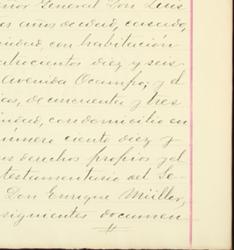 ñor General Don Luis
os años de edad, casado,
cidad, con habitación
atrocientos diez y seis
Avenida Ocampo; y el
ios, de cincuenta y tres
cidad, con domicilio en
número ciento diez y
us derechos propios y el
testamentario del Se-
Don Enrique Müller,
siguientes documen